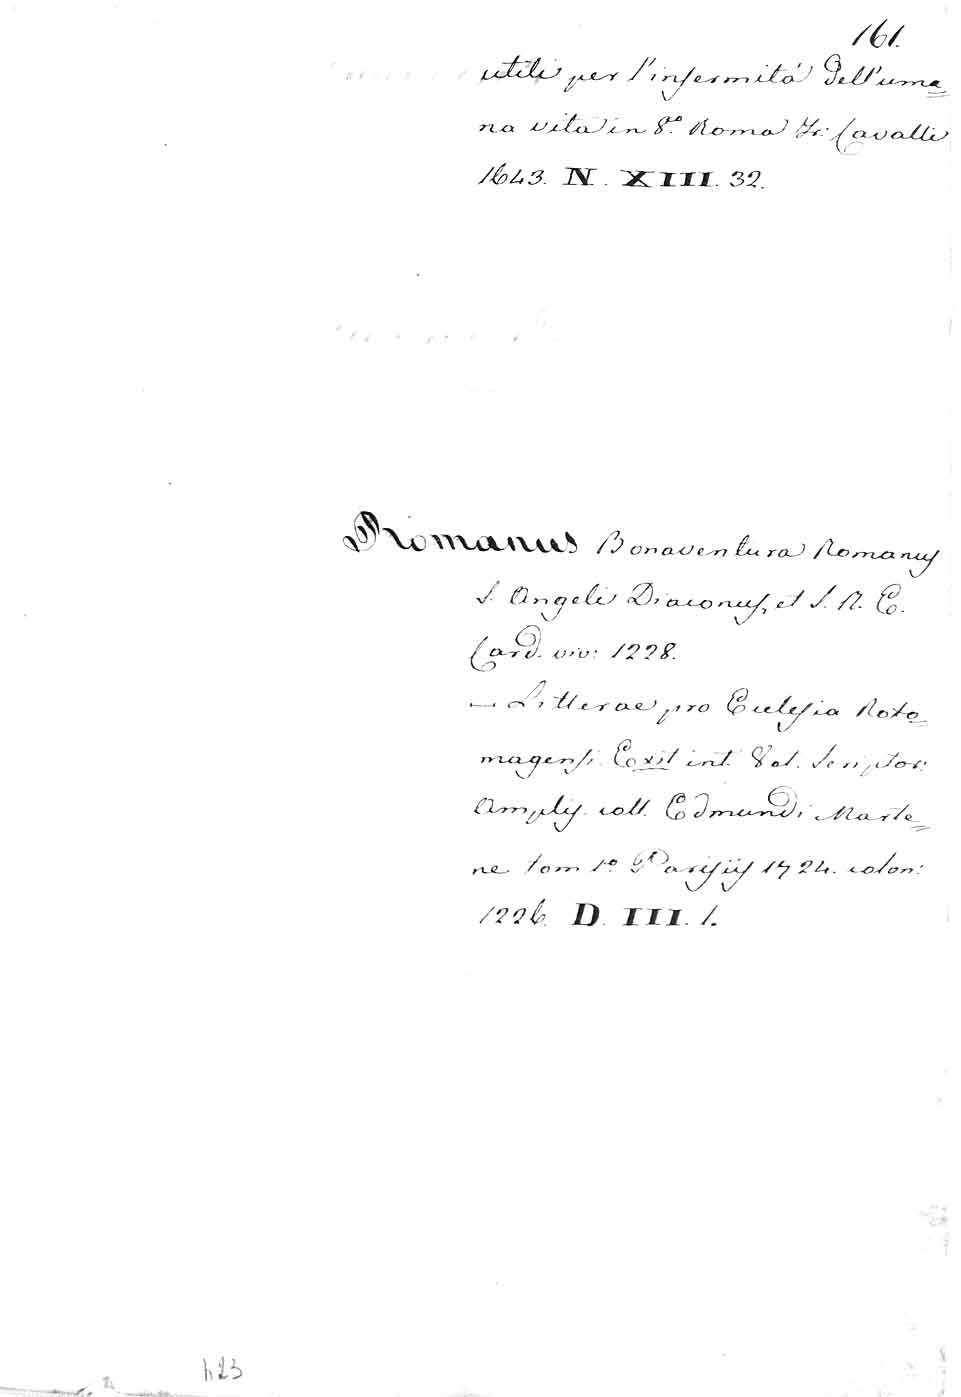 161.
utili per l'infermità dell'uma=
na vita in 8.º Roma Fr: Cavalli
1643. N. XIII. 32.
Romanus Bonaventura Romanus
S. Angeli Diaconus, et S. R. E.
Card. viv: 1228.
— Litterae pro Eclesia Roto=
magensi. Exit int. Vet. Scriptor:
Ampliss. coll. Edmundi Marte=
ne tom 1º Parisiis 1724. colon:
1226. D. III. 1.
h23